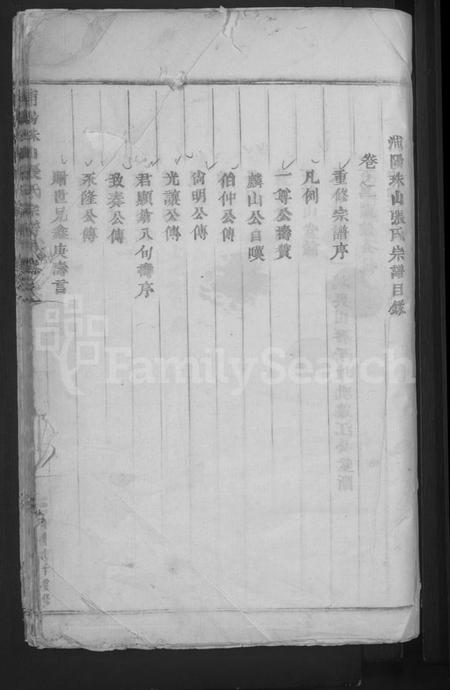 浦陽珠山張氏宗譜目錄
卷之一
重修宗譜序
凡例
一尊公壽贊
麟山公自嘆
伯仲公傳
尚明公傳
光讓公傳
君顯翁八旬壽序
致泰公傳
永隆公傳
贈世兄鑫庚壽言
FamilySearch